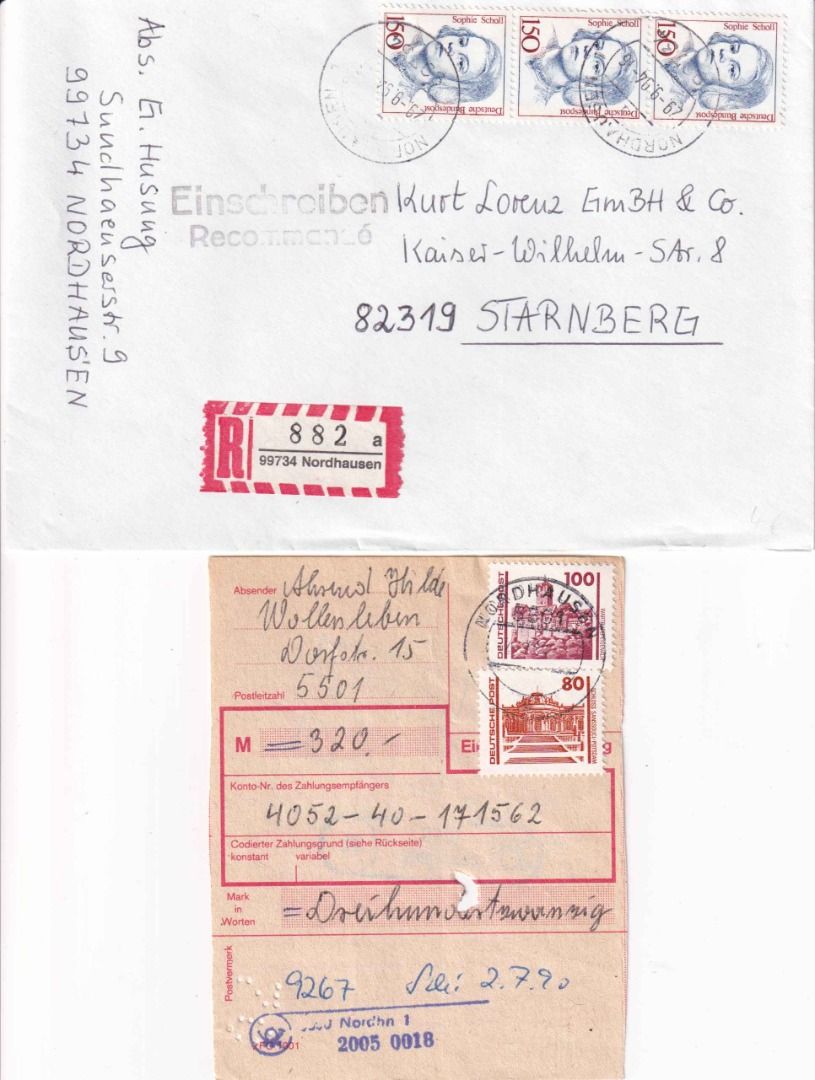 Abs. G. Husung
Sundhaeuserstr. 9
99734 NORDHAUSEN
Sophie Scholl
150
Deutsche Bundespost
Sophie Scholl
150
Deutsche Bundespost
Sophie Scholl
150
Deutsche Bundespost
-9.9.94-16
NORDHAUSEN
Einschreiben
Recommandé
Kurt Lorenz GmBH & Co.
Kaiser-Wilhelm-Str. 8
82319 STARNBERG
R
882 a
99734 Nordhausen
Absender Ahrend Hilde
Wollersleben
Dorfstr. 15
Postleitzahl 5501
100
DEUTSCHE POST
NORDHAUSEN
80
DEUTSCHE POST
SCHLOSS SANSSOUCI POTSDAM
M = 320,-
Konto-Nr. des Zahlungsempfängers
4052-40-171562
Codierter Zahlungsgrund (siehe Rückseite)
konstant variabel
Mark
in
Worten
= Dreihundertzwanzig
Postvermerk
9267 2.7.90
Nordhn 1
2005 0018